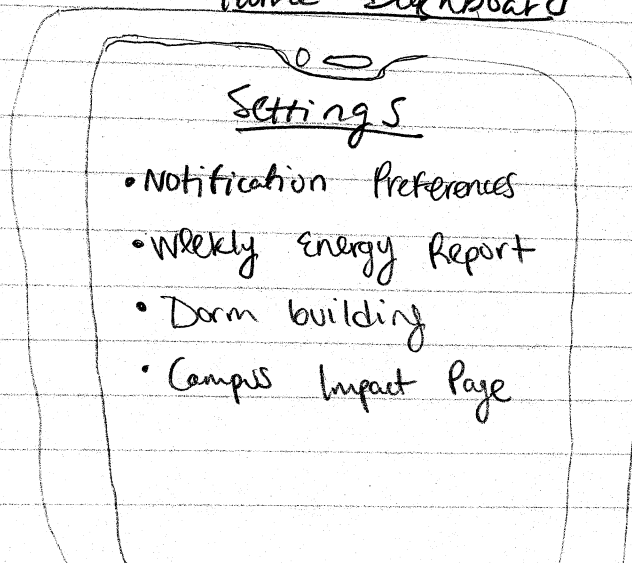 Dashboard
Settings
• Notification Preferences
• Weekly Energy Report
• Dorm building
• Campus Impact Page